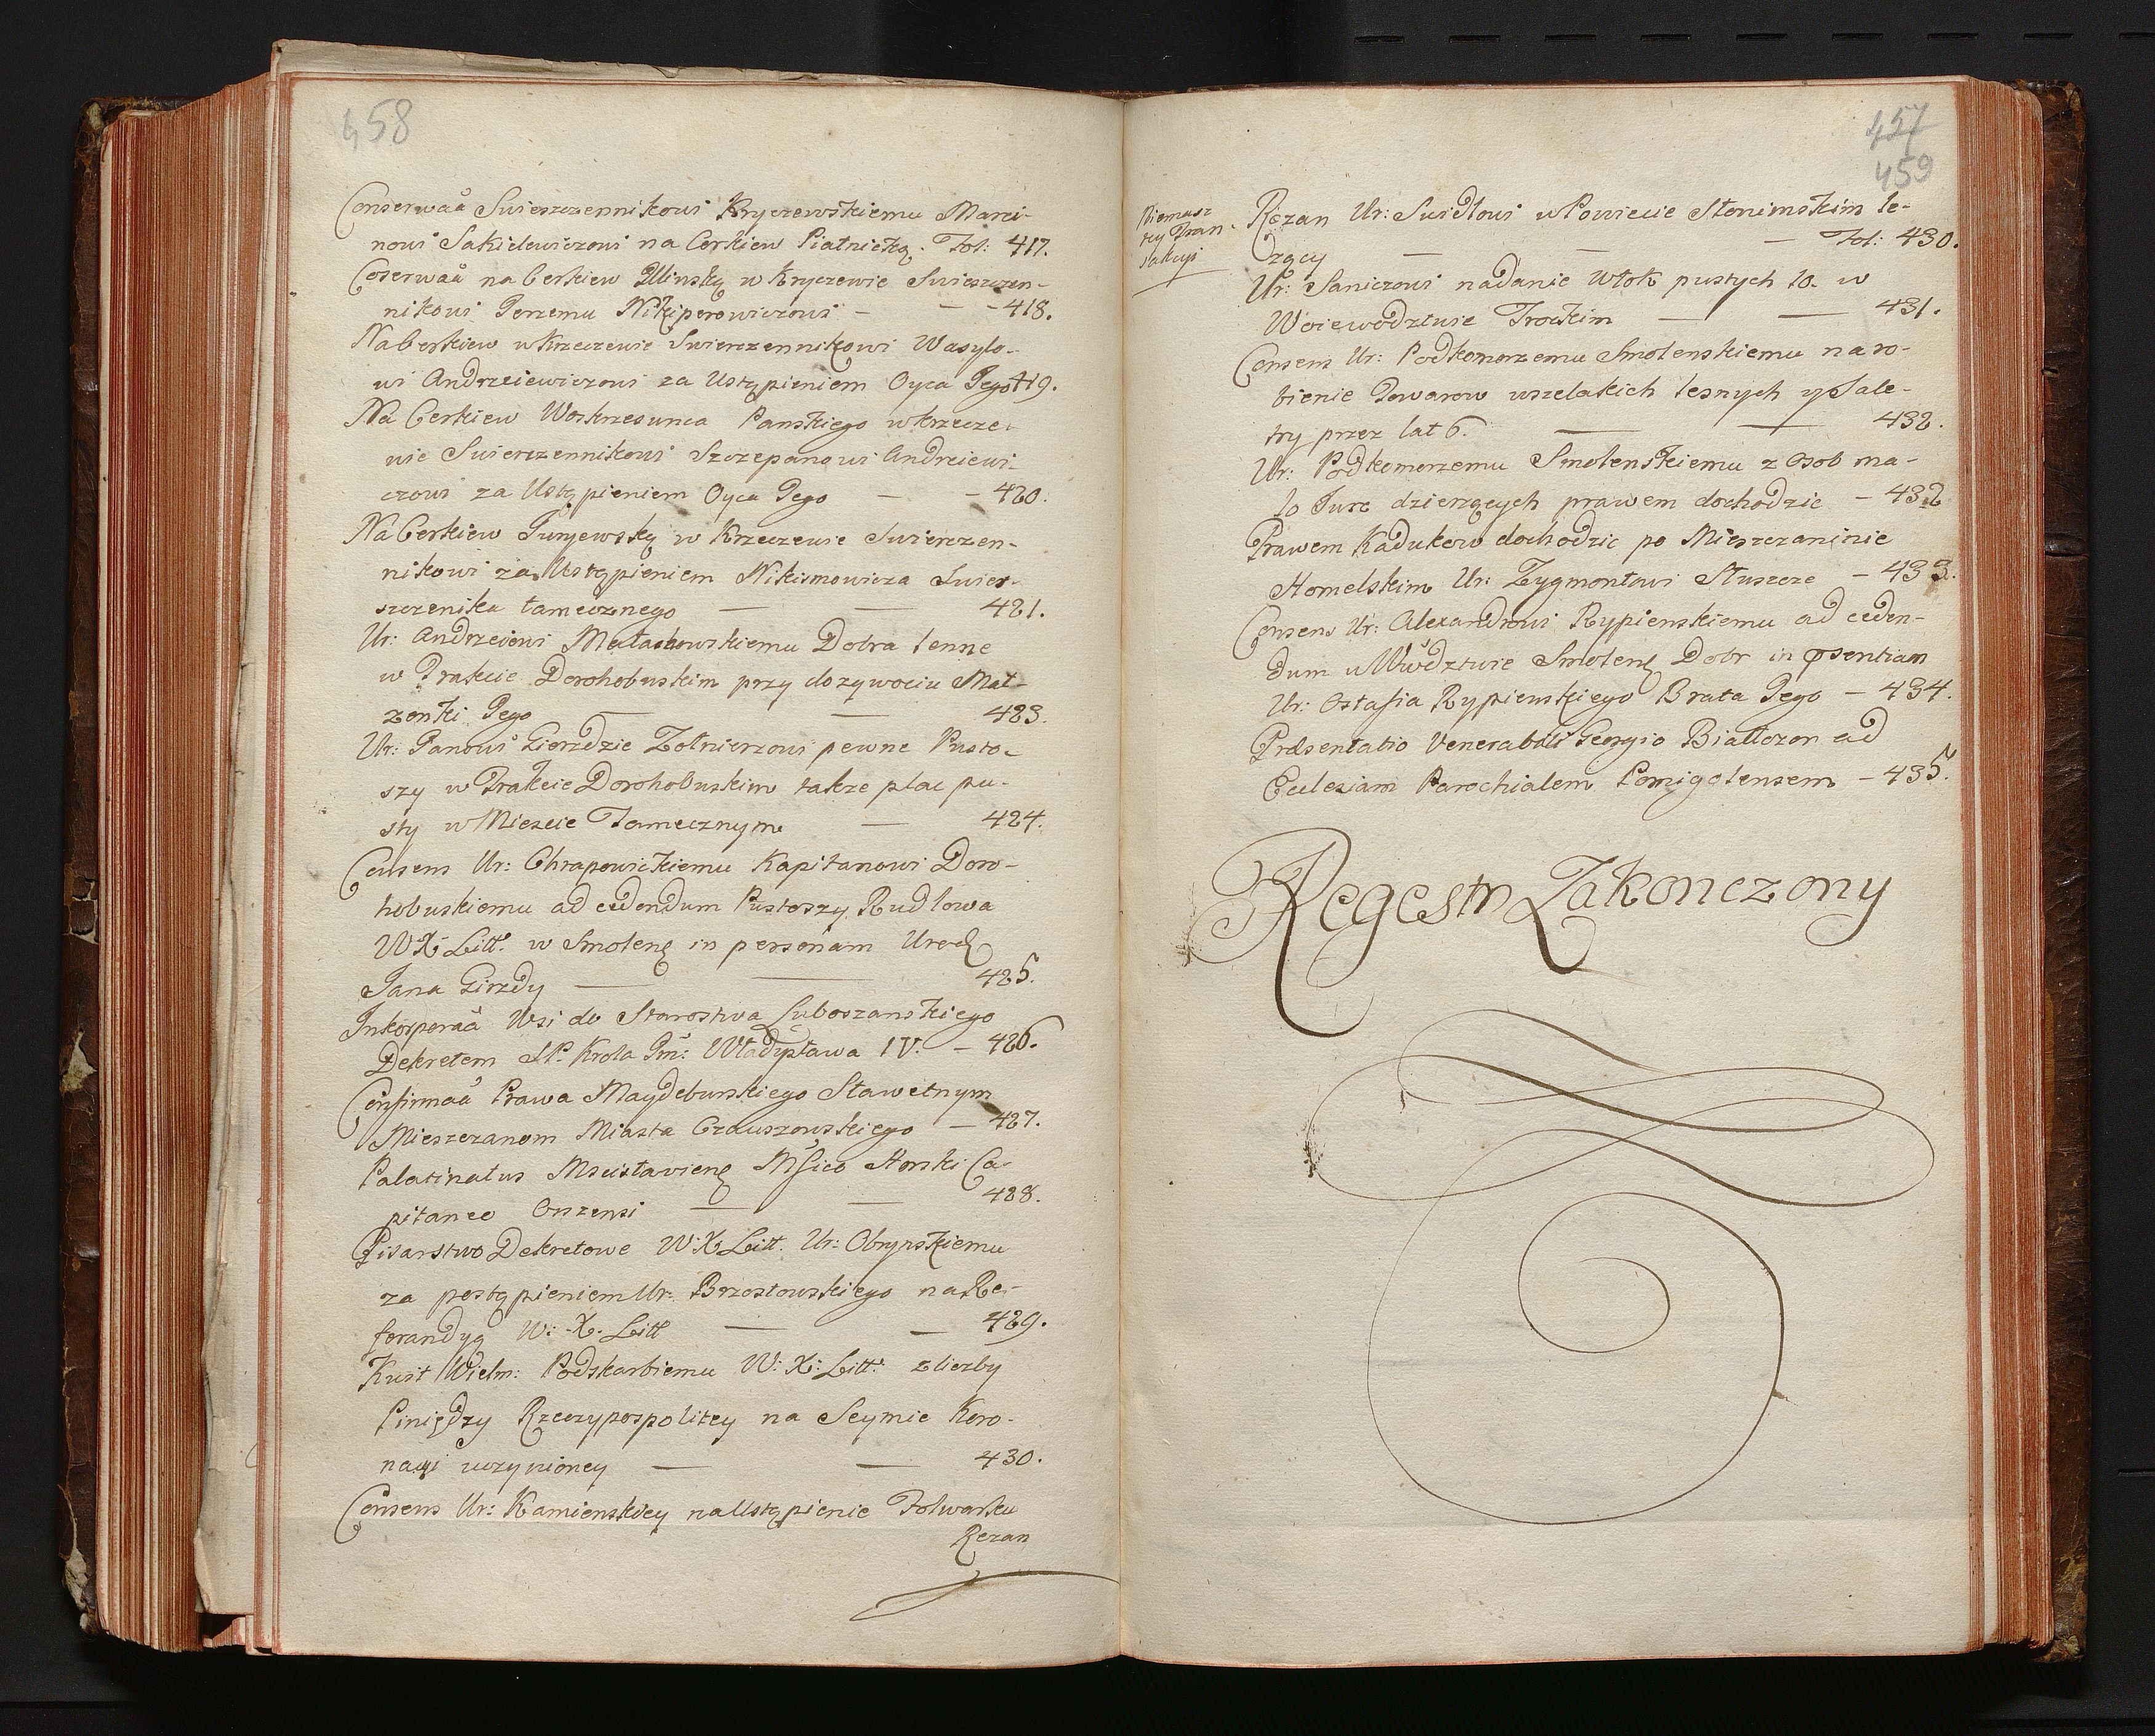 458
Conserwaã Swieszczennikowi Kryczewskiemu Marci-
nowi Sakielewiczowi na Cerkiew Piatnicką. Fol: 417.
Coserwaã na Cerkiew Illinską w Kryczewie Swieszczen-
nikowi Jerzemu Nikiperowiczowi — — - 418.
Na Cerkiew w Krzeczewie Swierczennikowi Wasylo-
wi Andrzeiewiczowi za Ustąpieniem Oyca Jego 419.
Na Cerkiew Woskrzesunca Panskiego w Krzecze-
wie Swierczennikowi Szczepanowi Andreiewi-
czowi za Ustąpieniem Oyca Jego — - 420.
Na Cerkiew Juryewską w Krzeczewie Swierczen-
nikowi za Ustąpieniem Nikismowicza Swier-
szczenika tamecznego — — 421.
Ur: Andrzeiowi Małachowskiemu Dobra lenne
w Trakcie Dorohobuskim przy dozywociu Mał-
zonki Jego — — 423.
Ur: Janowi Gierzdzie Zołnierzowi pewne Pusto-
szy w Trakcie Dorohobuskim takze plac pu-
sty w Miescie Tamecznym — 424.
Consens Ur: Chrapowickiemu Kapitanowi Doro-
hobuskiemu ad cedendum Pustoszy Rudlowa
W X Litt: w Smolenę in personam Urodz
Jana Girzdy — — 425.
Inkorporaã Wsi do Starostwa Luboszanskiego
Dekretem S.P. Krola Jm: Władysława IV. — 426.
Confirmaã Prawa Maydeburskiego Sławetnym
Mieszczanom Miasta Czauszowskiego — 427.
Palatinatus Mscistavienę Mfico Horski Ca-
pitaneo Orszensi — — 428.
Pisarstwo Dekretowe W: X Litt. Ur: Obrypskiemu
za postąpieniem Ur: Brzostowskiego na Re-
ferandyą W: X. Litt — — 429.
Kwit Wielm: Podskarbiemu W: X: Litt: z liczby
Piniędzy Rzeczypospolitey na Seymie Koro-
nacyi uczynioney — — 430.
Consens Ur: Kamienskiey na Ustąpienie Folwarku
Rezan
457
459
Niemasz
tey Tran-
sakcyi
Rezan Ur: Swidłowi w Powiecie Słonimskim le-
zący — — — Fol: 430.
Ur: Saniczowi nadanie Włok pustych 10. w
Woiewodztwie Trockim — — 431.
Consens Ur: Podkomorzemu Smolenskiemu na ro-
bienie Towarow wszelakich lesnych y Sale-
try przez lat 6. — — 432.
Ur: Podkomorzemu Smolenskiemu z Osob ma-
lo Jure dzierzących prawem dochodzic — 432
Prawem Kadukow dochodzic po Mieszczaninie
Homelskim Ur: Zygmontowi Słuszcze — 433.
Consens Ur: Alexandrowi Rypienskiemu ad ceden-
dum w Wwodztwie Smolenę Dobr in psentiam
Ur: Ostafia Rypienskiego Brata Jego — 434.
Præsentatio Venerabili Georgio Białłozor ad
Eclesiam Parochialem Pomigolensem — 435.
Regestr Zakonczony